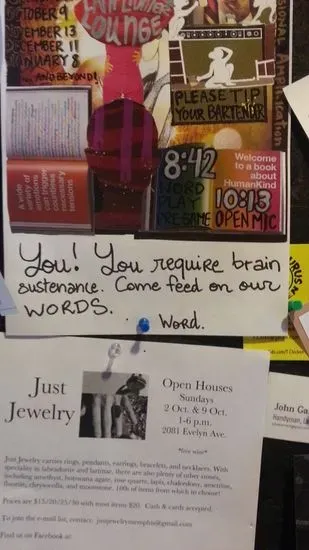 OCTOBER 9
NOVEMBER 13
DECEMBER 11
JANUARY 8
...AND BEYOND!
LOUNGE
PLEASE TIP
YOUR BARTENDER
A wide
variety of
emotions
can trigger
countless
necessary
tensions
8:42
WORD
PLAY
PRE GAME
Welcome
to a book
about
HumanKind
10:13
OPEN MIC
You! You require brain
sustenance. Come feed on our
WORDS.
Word.
Just
Jewelry
Open Houses
Sundays
2 Oct. & 9 Oct.
1-6 p.m.
2081 Evelyn Ave.
*free wine*
Just Jewelry carries rings, pendants, earrings, bracelets, and necklaces. With
speciality in labradorite and larimar, there are also plenty of other stones,
including amethyst, botswana agate, rose quartz, lapis, chalcedony, ametrine,
fluorite, chrysocolla, and moonstone. 100s of items from which to choose!
Prices are $15/20/25/30 with most items $20. Cash & cards accepted.
To join the e-mail list, contact: justjewelrymemphis@gmail.com
Find us on Facebook at:
John Ga
handyman,